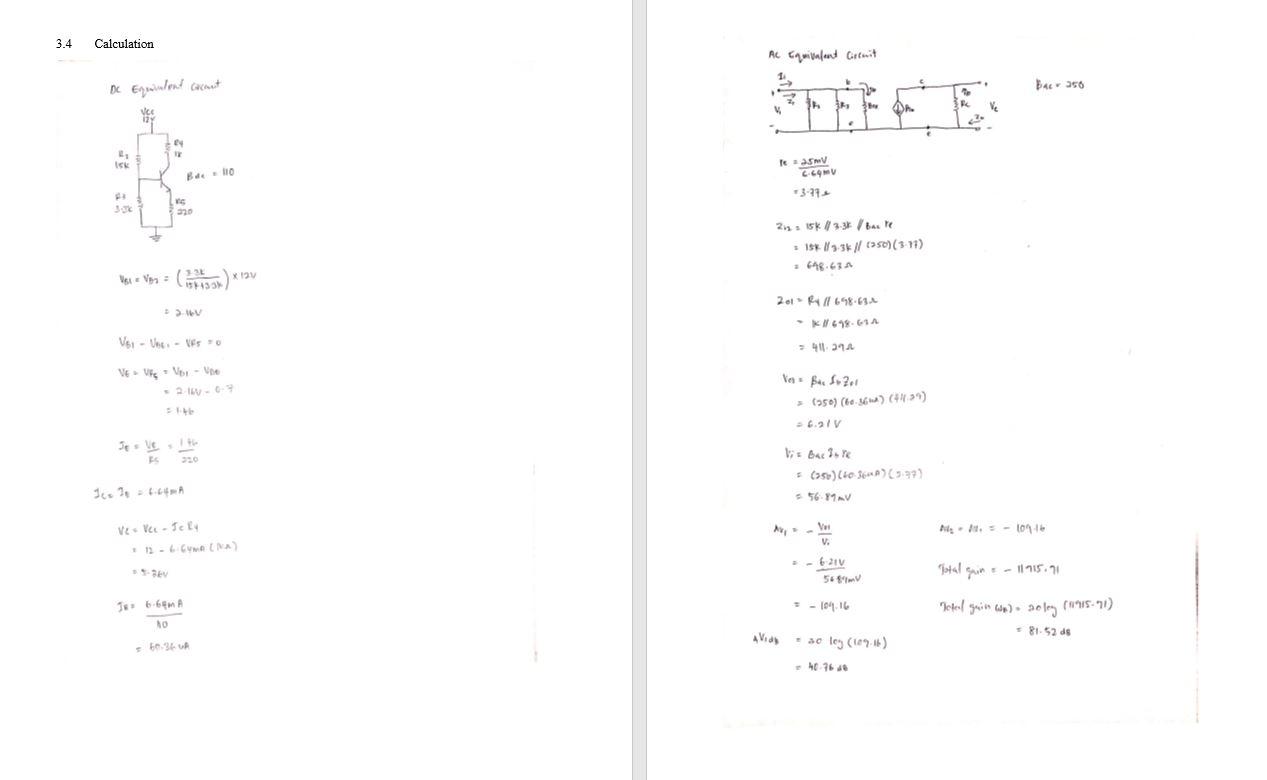 3.4 Calculation
DC Equivalent Circuit
Vcc
12V
R4
1K
R2
15K
Bdc = 110
R3
3.3K
R5
220
VB1 = VB2 = (3.3K / 15K+3.3K) x 12V
= 2.16V
VB1 - VBE1 - VR5 = 0
VE = VR5 = VB1 - VBE
= 2.16V - 0.7
= 1.46
IE = VE / R5 = 1.46 / 220
IC = IE = 6.64mA
VC = VCC - IC R4
= 12 - 6.64mA (1K)
= 5.36V
IB = 6.64mA / 110
= 60.36 uA
AC Equivalent Circuit
Ii
b
c
Bac = 250
Vi
Zi
R2
R3
Bre
Rc
Zo
e
e
re = 25mV / 6.64mV
= 3.77Ω
Zi2 = 15K // 3.3K // Bac re
= 15K // 3.3K // (250)(3.77)
= 698.63Ω
Zo1 = R4 // 698.63Ω
= 1K // 698.63Ω
= 411.29Ω
Vo1 = Bac Ib Zo1
= (250) (60.36uA) (411.29)
= 6.21V
Vi = Bac Ib re
= (250)(60.36uA)(3.77)
= 56.89mV
AV1 = - Vo1 / Vi
= - 6.21V / 56.89mV
= - 109.16
AV1dB = 20 log (109.16)
= 40.76 dB
AV2 = AV1 = - 109.16
Total gain = - 11915.91
Total gain (dB) = 20 log (11915.91)
= 81.52 dB